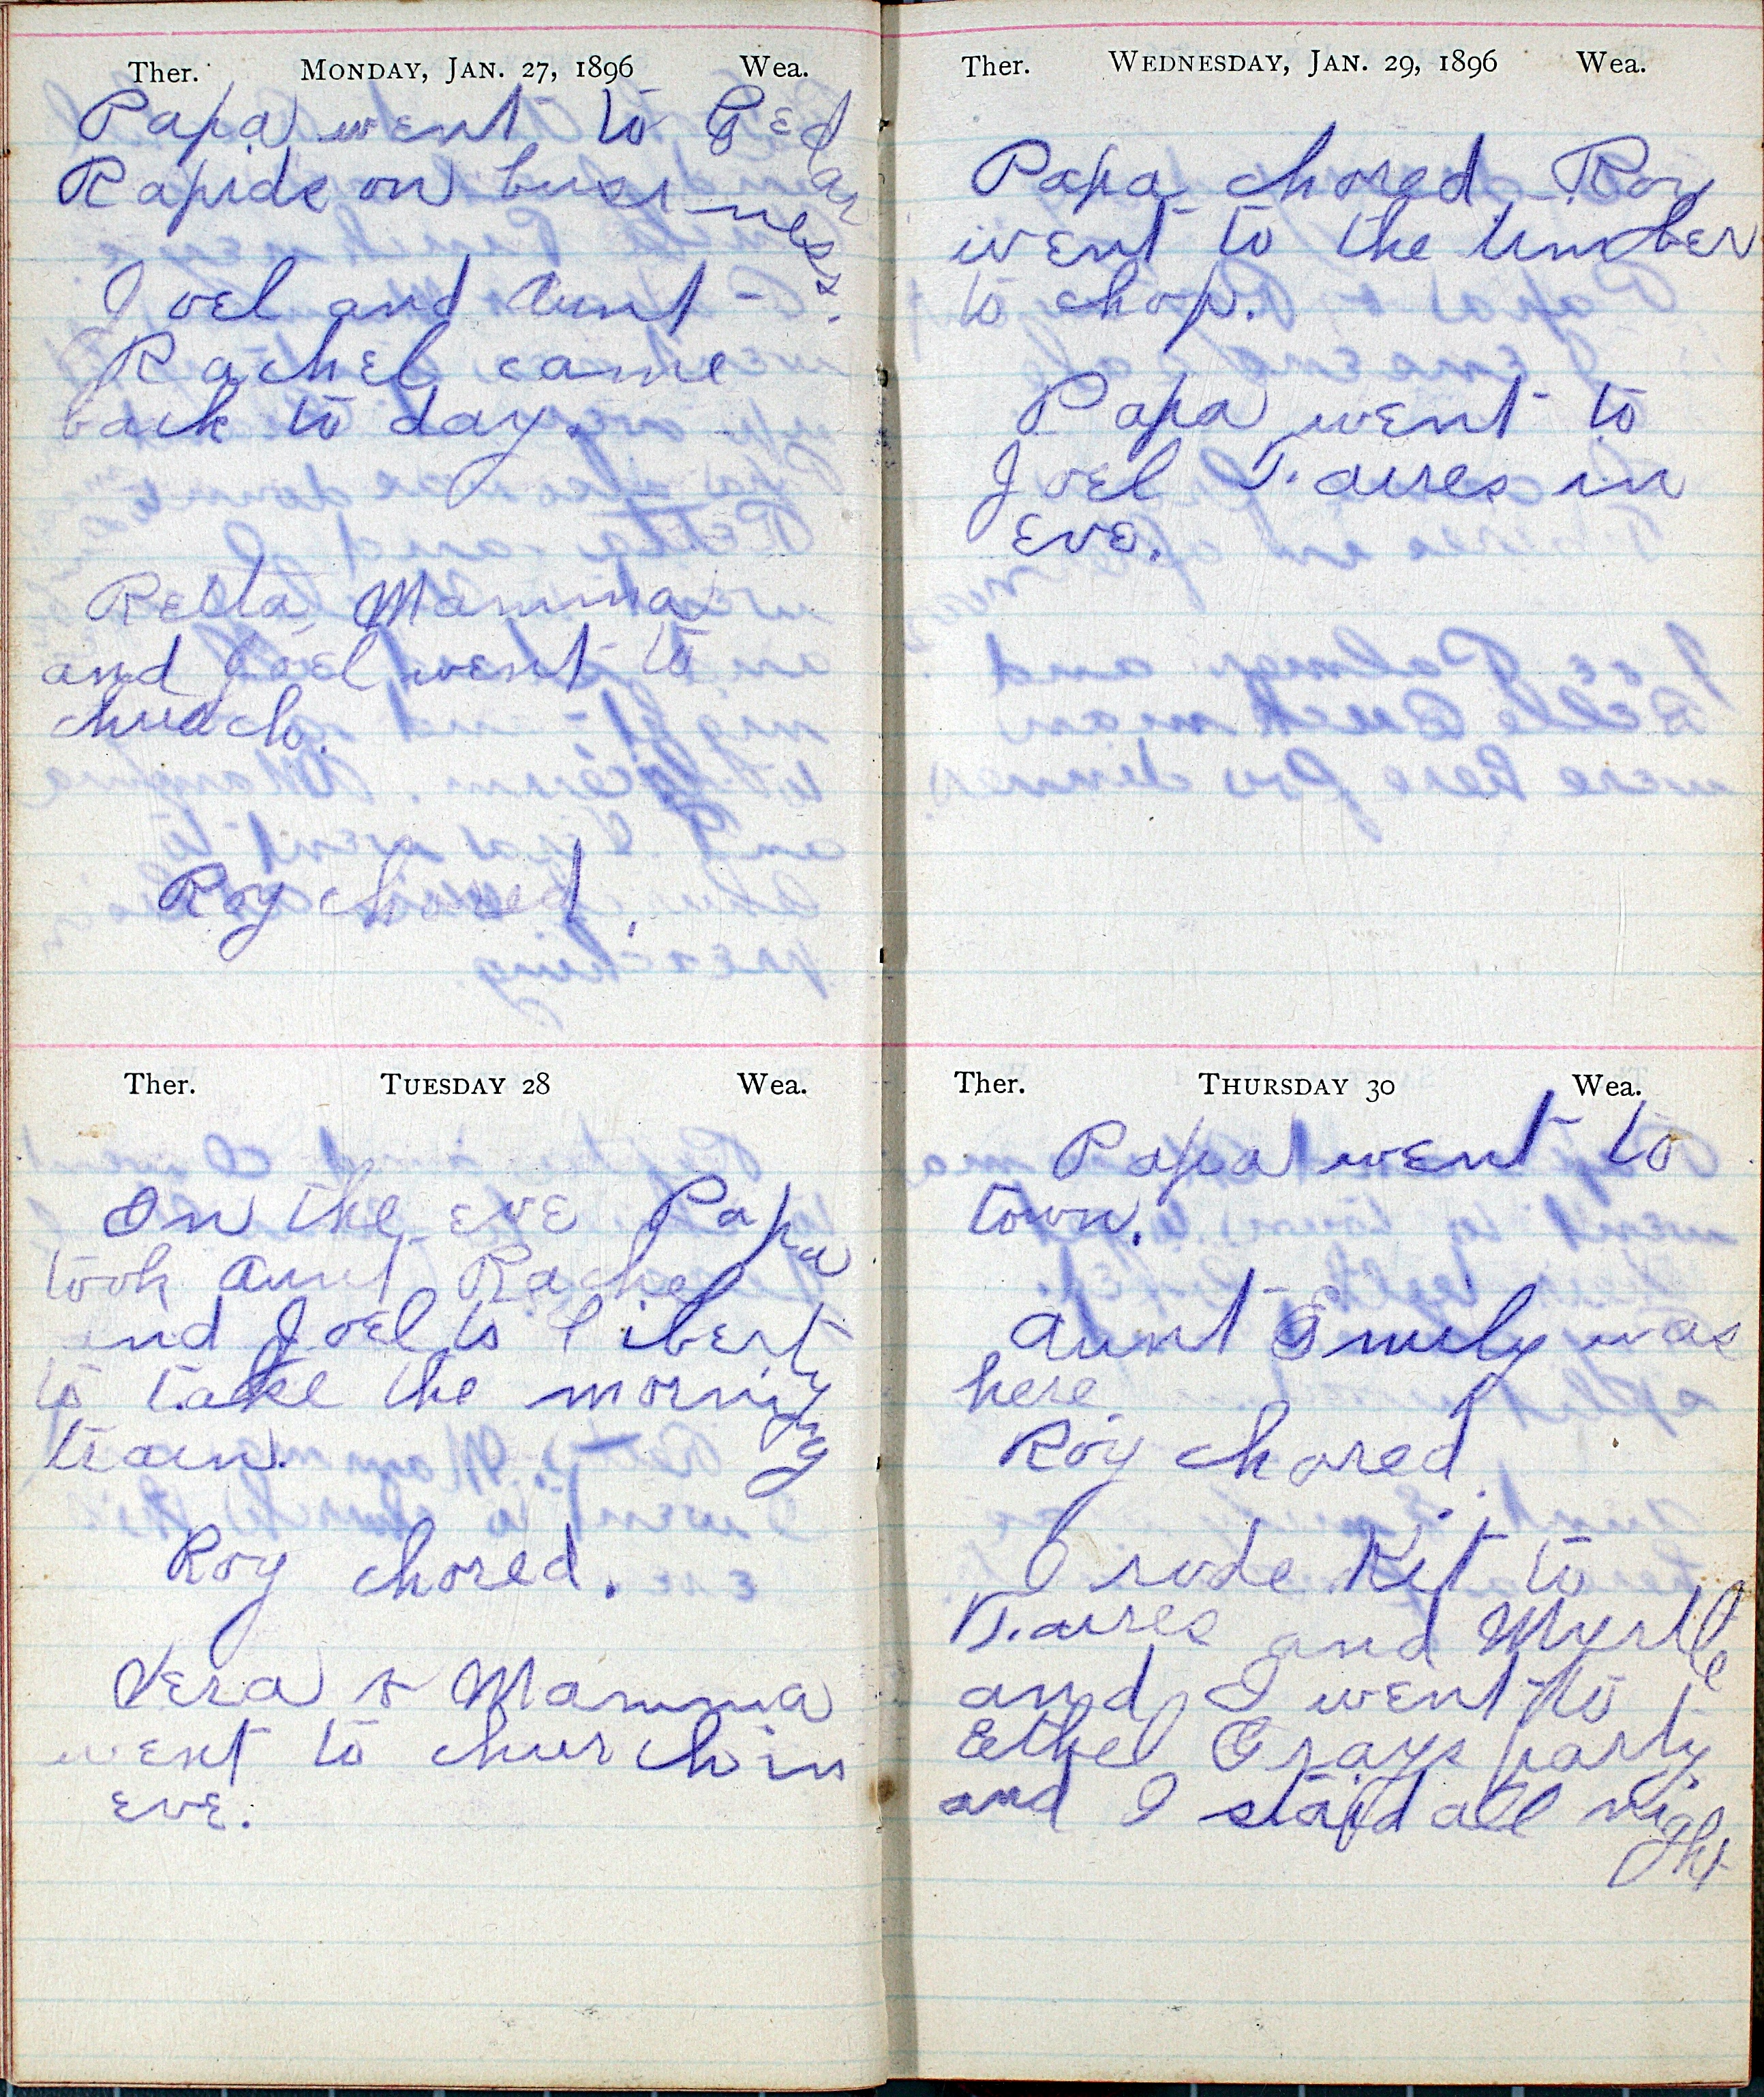 Ther. MONDAY, JAN. 27, 1896 Wea.
Papa went to Cedar
Rapids on business.
Joel and Aunt
Rachel came
back to day.
Retta, Mamma
and Joel went to
church.
Roy chored.
Ther. TUESDAY 28 Wea.
In the eve Papa
took Aunt Rachel
and Joel to Liberty
to take the morning
train.
Roy chored.
Vera & Mamma
went to church in
eve.
Ther. WEDNESDAY, JAN. 29, 1896 Wea.
Papa chored Roy
went to the timber
to chop.
Papa went to
Joel in
eve.
Ther. THURSDAY 30 Wea.
Papa went to
town.
Aunt Emily was
here.
Roy chored.
I rode Kit to
and Myrtle
and I went to
Ethel Grays party
and I staid all night